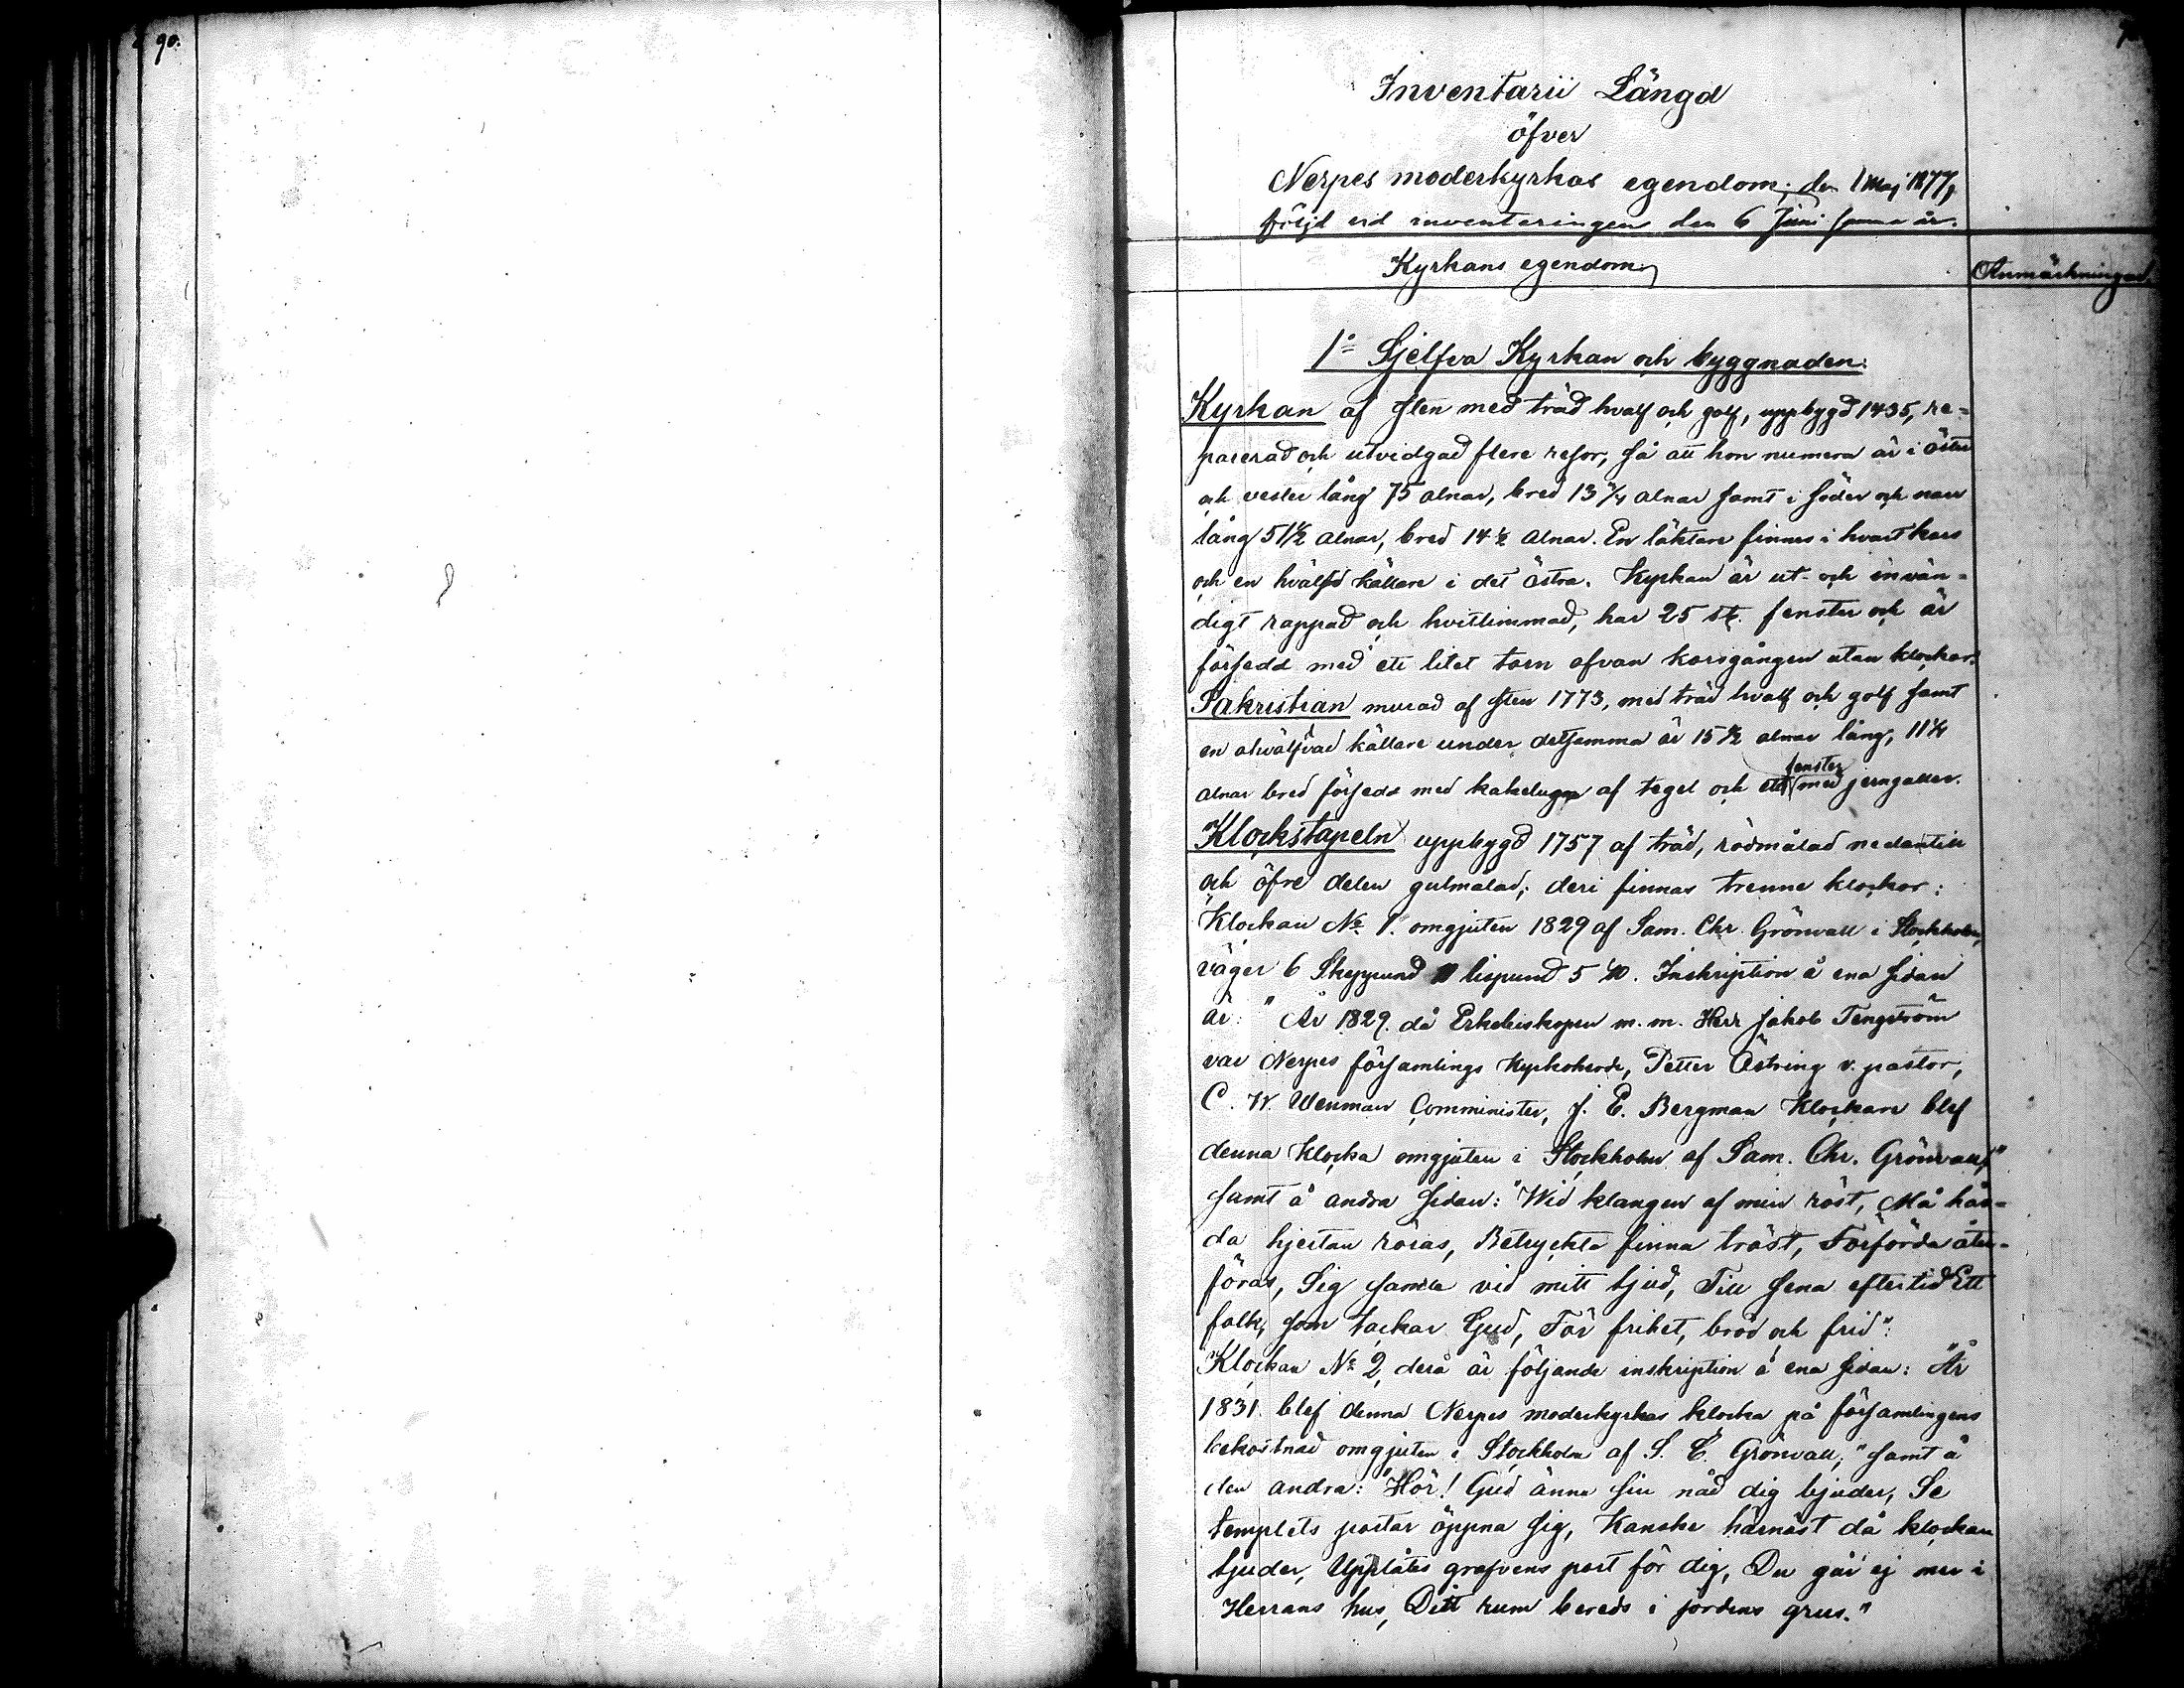 90.
Inventarii Längd
öfver
Nerpes moderkyrkas egendom, den 1 Maj 1877,
följd vid inventeringen den 6 Juni samma år.
Kyrkans egendom.
Anmärkningar.
1º Sjelfva Kyrkan och byggnaden.
Kyrkan af sten med träd hvalf och golf, uppbygd 1435, re=
parerad och utvidgad flere resor, så att hon numera är i öster
och vester lång 75 alnar, bred 13 3/4 alnar samt i söder och norr
lång 51 1/2 alnar, bred 14 1/2 alnar. En läktare finnes i hvart kors
och en hvälfd källare i det Östra. Kyrkan är ut- och invän=
digt rappad och hvitlimmad, har 25 st. fenster och är
försedd med ett litet torn ofvan korsgången utan klockor.
Sakristian murad af sten 1773, med träd hvalf och golf samt
en ohvälfvad källare under detsamma är 15 1/2 alnar lång, 11 1/4
alnar bred försedd med kakelugn af tegel och ett fenster med jerngaller.
Klockstapeln uppbygd 1757 af träd, rödmålad nedantill
och öfre delen gulmålad; deri finnas trenne klockor:
Klockan No 1. omgjuten 1829 af Sam. Chr. Grönvall i Stockholm,
väger 6 Skeppund 11 lispund 5 ℔. Inskription å ena sidan
är: "År 1829. då Erkebiskopen m. m. Herr Jakob Tengström
var Nerpes församlings Kyrkoherde, Petter Östring v. pastor,
C. W. Wenman Comminister, J. E. Bergman Klockare blef
denna klocka omgjuten i Stockholm af Sam. Chr. Grönvall,"
samt å andra sidan: "Wid klangen af min röst, Må hår=
da hjertan röras, Betryckta finna tröst, Förförda åter=
föras, Sig samla vid mitt ljud, Till sena eftertid Ett
folk, som tackar Gud, För frihet, bröd och frid".
Klockan No 2, derå är följande inskription å ena sidan: "År
1831. blef denna Nerpes moderkyrkas klocka på församlingens
bekostnad omgjuten i Stockholm af S. C. Grönvall," samt å
den andra: "Hör! Gud ännu sin nåd dig bjuder, Se
templets portar öppna sig, Kanske härnäst då klockan
ljuder, Upplåtes grafvens port för dig, Du går ej mer i
Herrans hus, Ditt rum bereds i jordens grus."